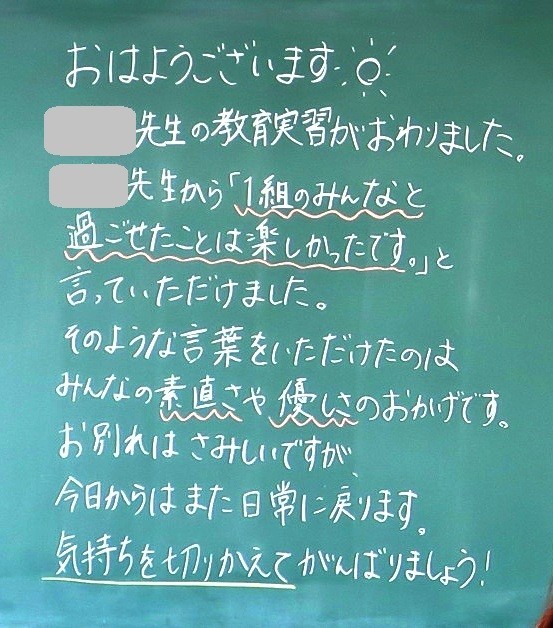 おはようございます
先生の教育実習がおわりました。
先生から「1組のみんなと
過ごせたことは楽しかったです。」と
言っていただけました。
そのような言葉をいただけたのは
みんなの素直さや優しさのおかげです。
お別れはさみしいですが、
今日からはまた日常に戻ります。
気持ちを切りかえてがんばりましょう!